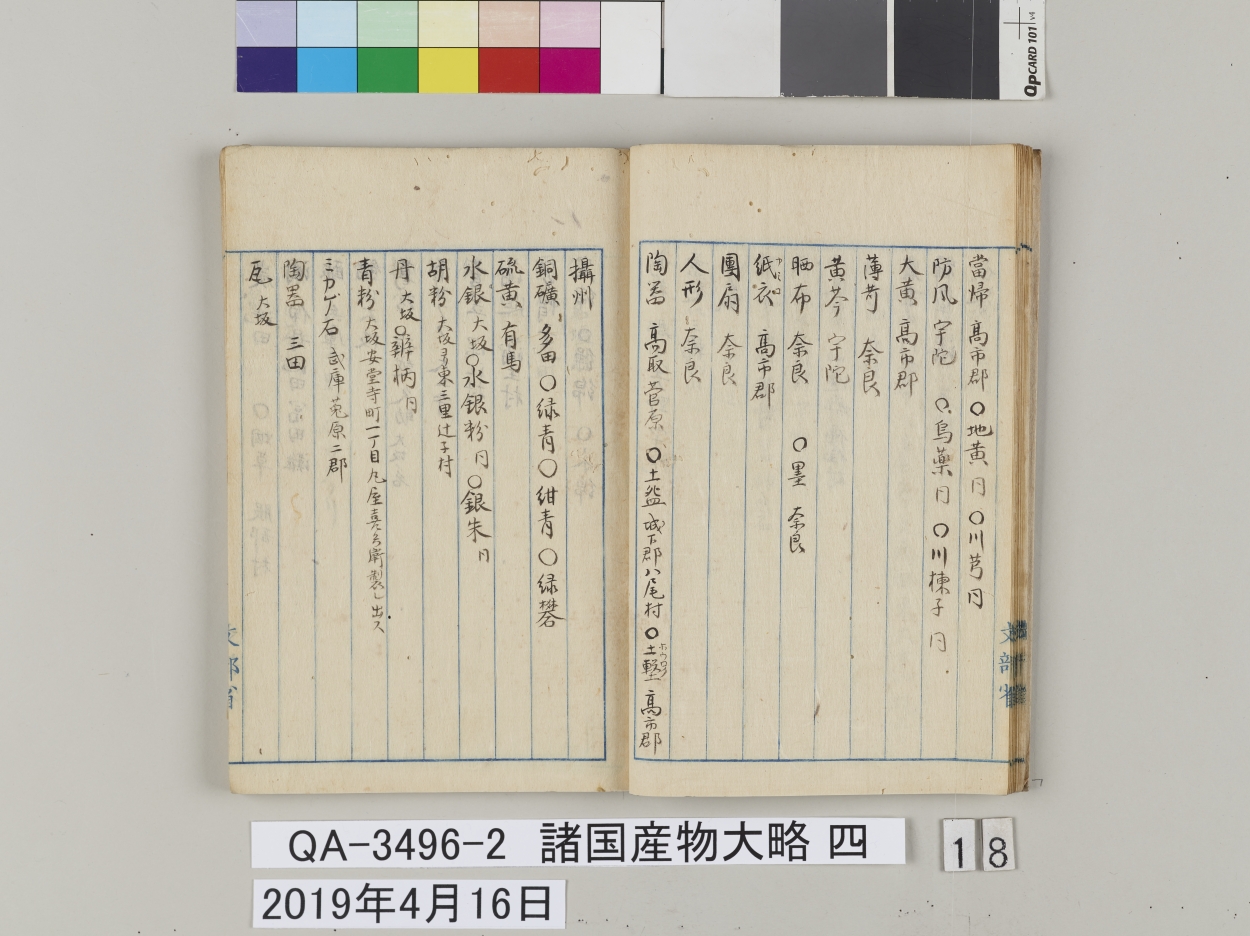 當帰 高市郡 〇地黄 同 〇川芎 同
防風 宇陀 〇烏藥 同 〇川楝子 同
大黄 高市郡
薄苛 奈良
黄芩 宇陀
晒布 奈良 〇墨 奈良
紙衣 高市郡
團扇 奈良
人形 奈良
陶器 高取 菅原 〇土盆 城下郡八尾村 〇土 高市郡
文部省
攝州
銅礦 多田 〇緑青 〇紺青 〇緑礬
硫黄 有馬
水銀 大坂 〇水銀粉 同 〇銀朱 同
胡粉 大坂ヨリ東三里辻子村
丹 大坂 〇辨柄 同
青粉 大坂安堂寺町一丁目丸屋喜兵衛製し出ス
ミカゲ石 武庫菟原二郡
陶器 三田
瓦 大坂
文部省
QpCARD 101 v4
QA-3496-2 諸国産物大略 四
18
2019年4月16日